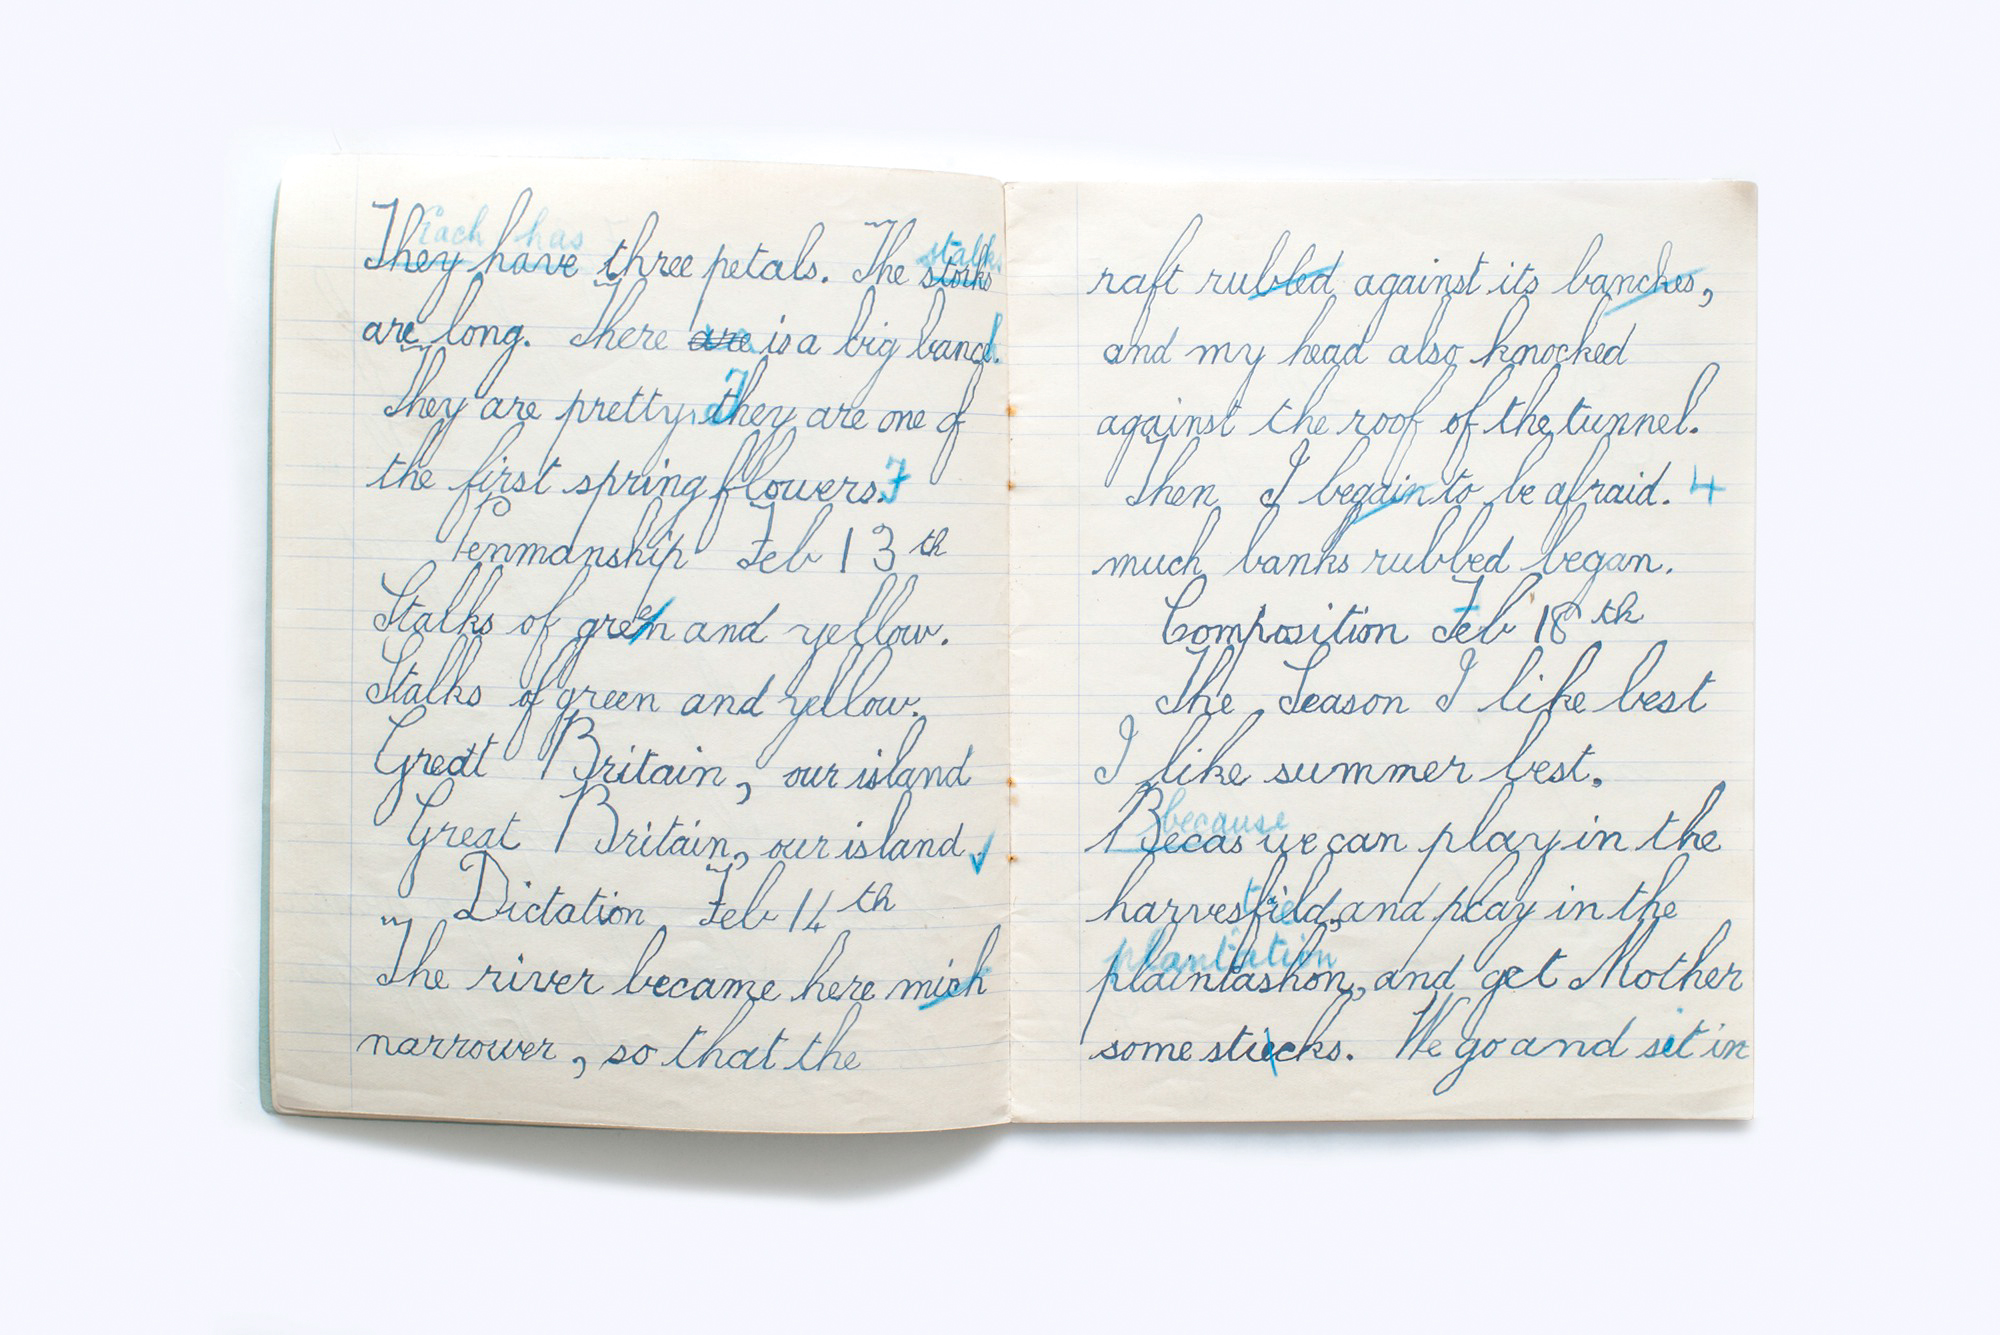 Each has
They have three petals. The storks
stalks
are long. There are is a big banch.
They are pretty, They are one of
the first spring flowers. 7
Penmanship Feb 13th
Stalks of green and yellow.
Stalks of green and yellow.
Great Britain, our island
Great Britain, our island
Dictation Feb 14th
The river became here mich
narrower, so that the
raft rubled against its banches,
and my head also knocked
against the roof of the tunnel.
Then I begain to be afraid. 4
much banks rubbed began.
Composition Feb 18th
The Season I like best
I like summer best.
because
Becas we can play in the
harvestfield, and play in the
plantation
plaintashon, and get Mother
some stiecks. We go and sit in